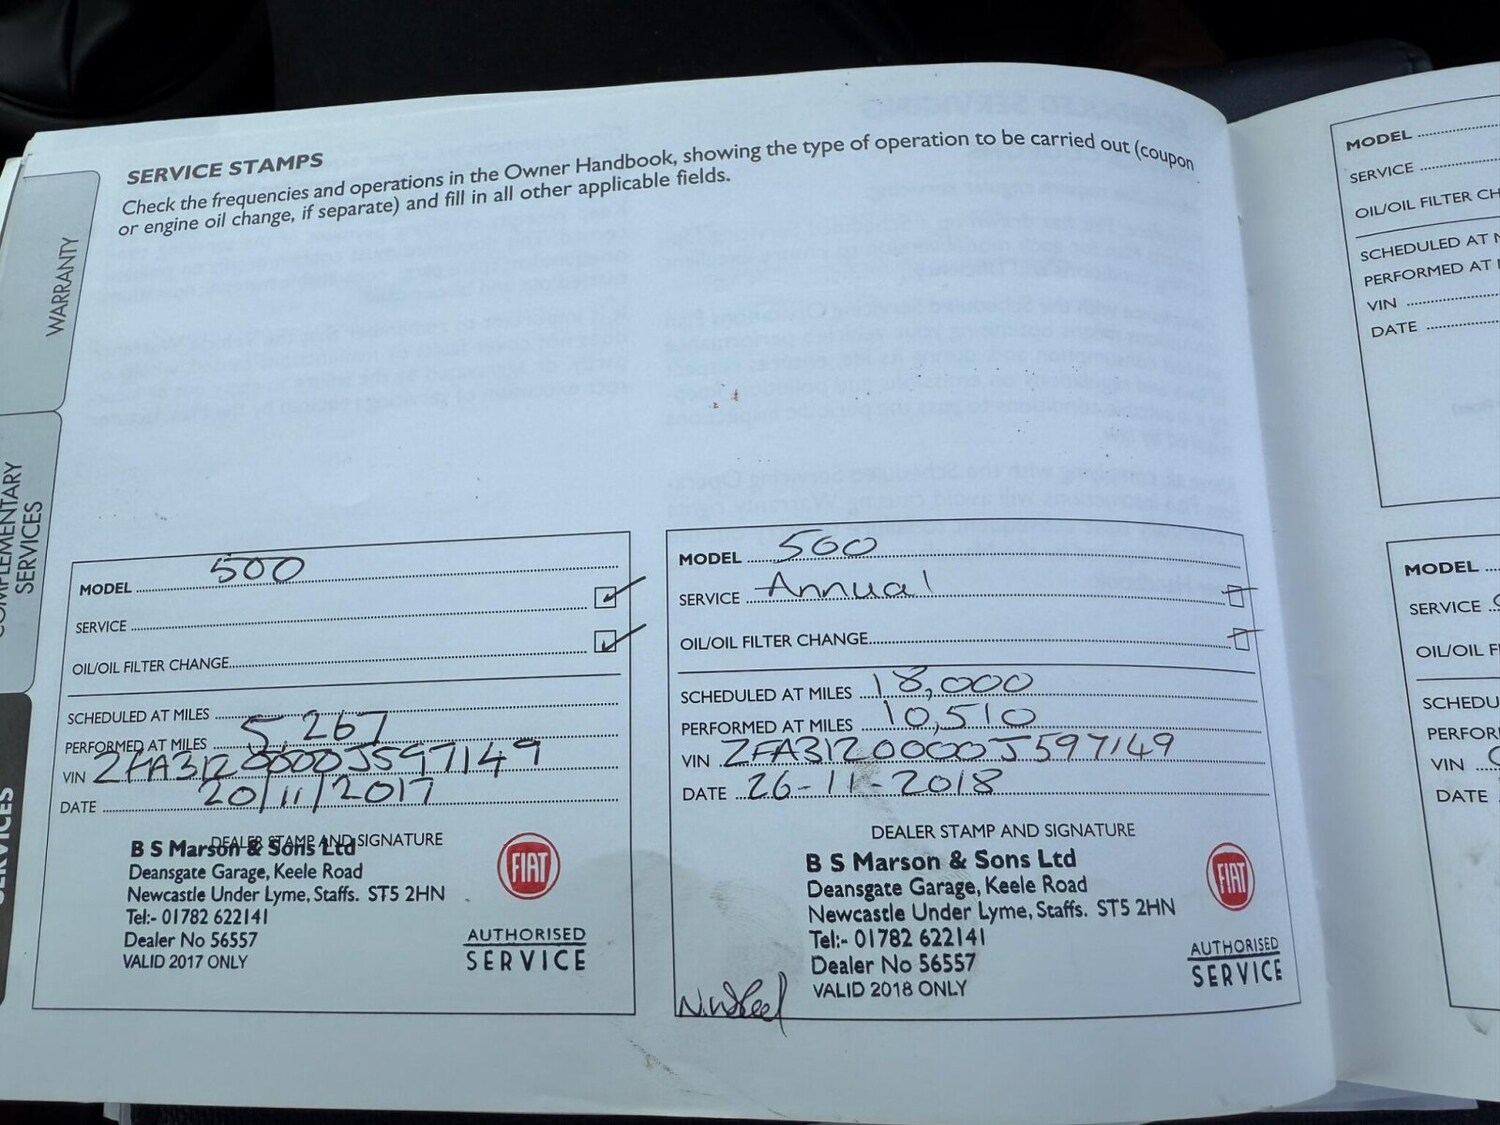 SERVICE STAMPS
Check the frequencies and operations in the Owner Handbook, showing the type of operation to be carried out (coupon
or engine oil change, if separate) and fill in all other applicable fields.
WARRANTY
SERVICES
MODEL 500
SERVICE
OIL/OIL FILTER CHANGE
SCHEDULED AT MILES
PERFORMED AT MILES 5,267
VIN ZFA3120000J597149
DATE 20/11/2017
DEALER STAMP AND SIGNATURE
B S Marson & Sons Ltd
Deansgate Garage, Keele Road
Newcastle Under Lyme, Staffs. ST5 2HN
Tel:- 01782 622141
Dealer No 56557
VALID 2017 ONLY
FIAT
AUTHORISED
SERVICE
MODEL 500
SERVICE Annual
OIL/OIL FILTER CHANGE
SCHEDULED AT MILES 18,000
PERFORMED AT MILES 10,510
VIN ZFA3120000J597149
DATE 26-11-2018
DEALER STAMP AND SIGNATURE
B S Marson & Sons Ltd
Deansgate Garage, Keele Road
Newcastle Under Lyme, Staffs. ST5 2HN
Tel:- 01782 622141
Dealer No 56557
VALID 2018 ONLY
FIAT
AUTHORISED
SERVICE
MODEL
SERVICE
OIL/OIL FILTER CH
SCHEDULED AT
PERFORMED AT
VIN
DATE
MODEL
SERVICE
OIL/OIL F
SCHEDU
PERFOR
VIN
DATE